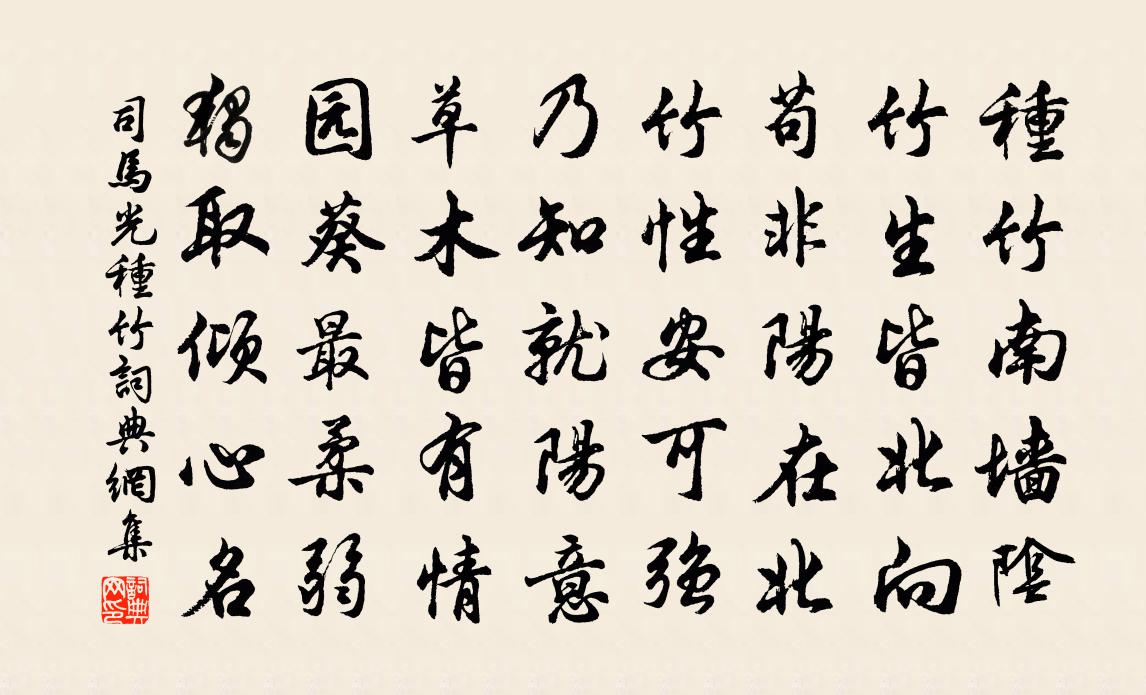 種竹南墙陰
竹生皆北向
苟非陽在北
竹性安可强
乃知就陽意
草木皆有情
园葵最柔弱
獨取倾心名
司馬光種竹詞典網集
詞典网印